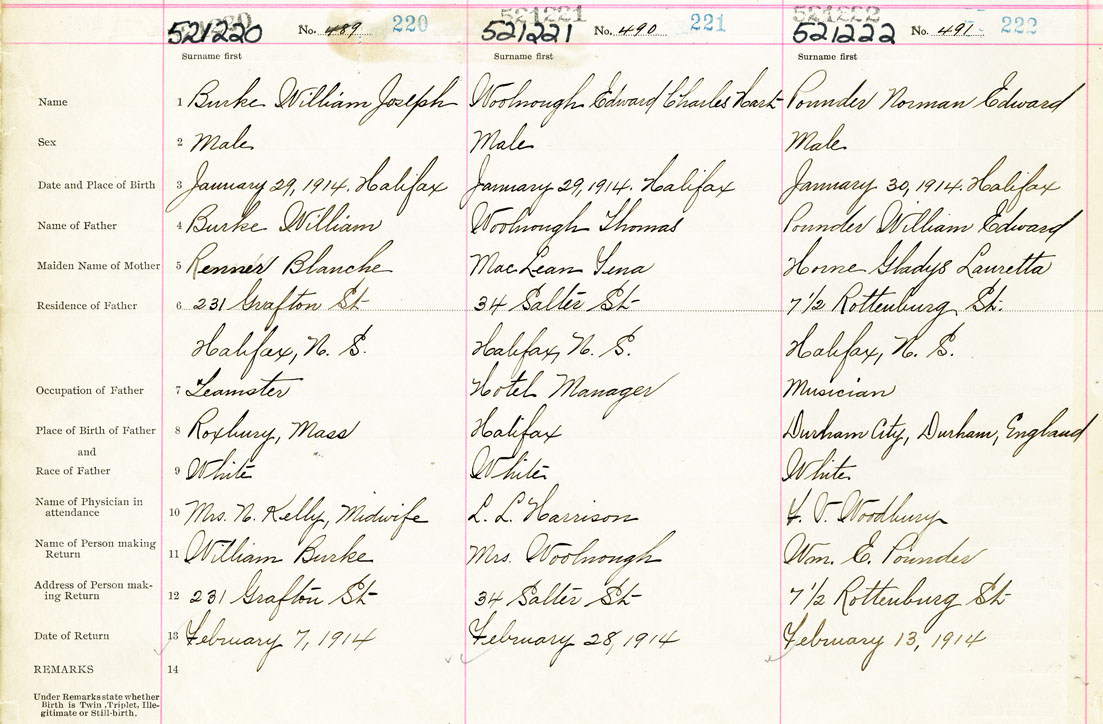 521220 No. 489 220 521221 No. 490 221 521222 No. 491 222
Surname first Surname first Surname first
Name 1 Burke William Joseph Woolnough Edward Charles Hart Pounder Norman Edward
Sex 2 Male Male Male
Date and Place of Birth 3 January 29, 1914. Halifax January 29, 1914. Halifax January 30, 1914. Halifax
Name of Father 4 Burke William Woolnough Thomas Pounder William Edward
Maiden Name of Mother 5 Renner Blanche MacLean Tena Horne Gladys Lauretta
Residence of Father 6 231 Grafton St 34 Salter St 7 1/2 Rottenburg St.
Halifax, N. S. Halifax, N. S. Halifax, N. S.
Occupation of Father 7 Teamster Hotel Manager Musician
Place of Birth of Father 8 Roxbury, Mass Halifax Durham City, Durham, England
and
Race of Father 9 White White White
Name of Physician in
attendance 10 Mrs. N. Kelly, Midwife L. L. Harrison Woodbury
Name of Person making
Return 11 William Burke Mrs. Woolnough Wm. E. Pounder
Address of Person mak-
ing Return 12 231 Grafton St 34 Salter St 7 1/2 Rottenburg St
Date of Return 13 February 7, 1914 February 28, 1914 February 13, 1914
REMARKS 14
Under Remarks state whether
Birth is Twin, Triplet, Ille-
gitimate or Still-birth.